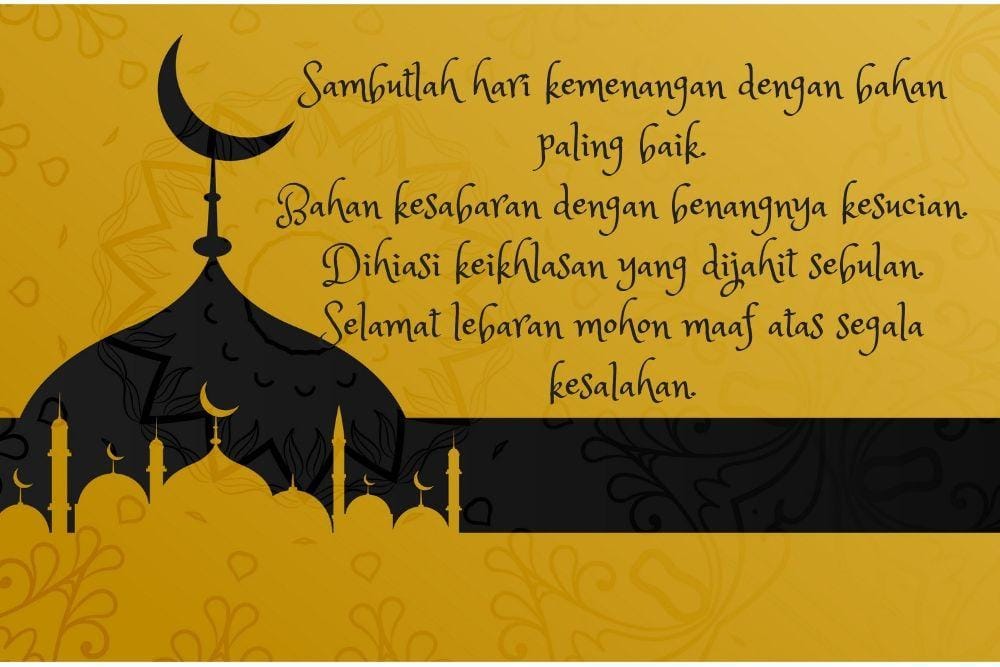 Sambutlah hari kemenangan dengan bahan
paling baik.
Bahan kesabaran dengan benangnya kesucian.
Dihiasi keikhlasan yang dijahit sebulan.
Selamat lebaran mohon maaf atas segala
kesalahan.